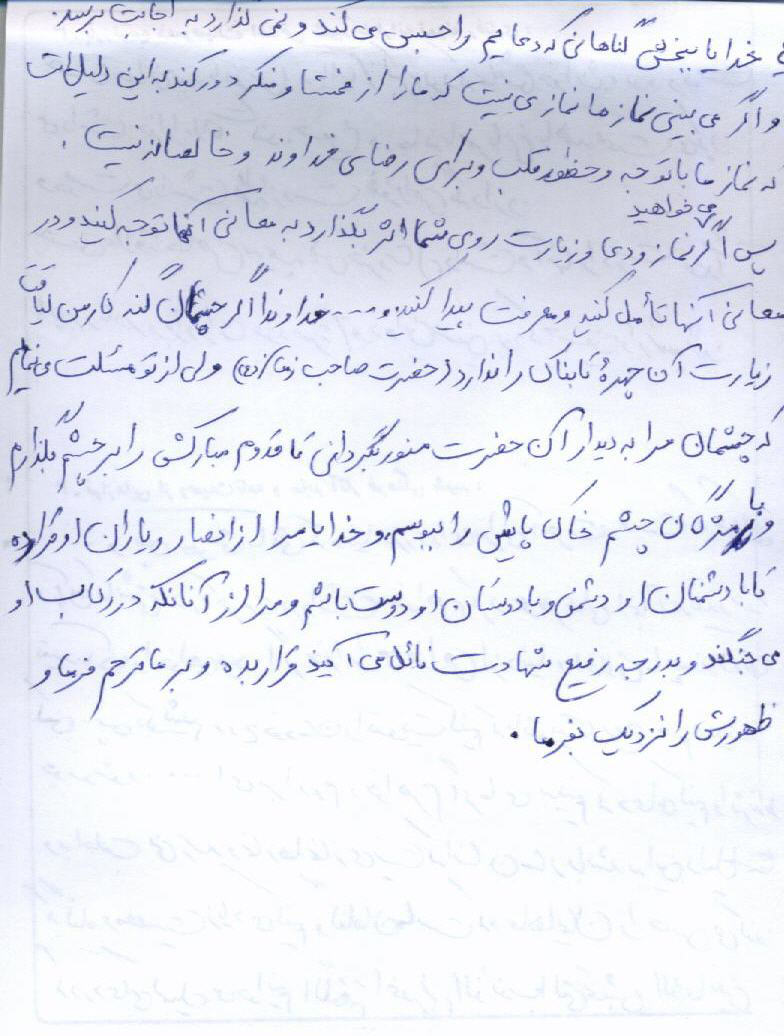 خدایا ببخش گناهانی که دعایم را حبس می کند و نمی گذارد به اجابت برسد.
و اگر می بینی نماز ما نمازی نیست که ما را از فحشا و منکر دور کند به این دلیل است
که نماز ما با توجه و حضور قلب و برای رضای خداوند و خالصانه نیست.
می خواهید
پس اگر نماز و دعا و زیارت روی شما اثر بگذارد به معانی آنها توجه کنید و در
معانی آنها تأمل کنید و معرفت پیدا کنید و.... خداوندا اگر چشمان گنه کار من لیاقت
زیارت آن چهرهٔ تابناک را ندارد (حضرت صاحب زمان (عج)) ولی از تو مسئلت می نمایم
که چشمان مرا به دیدار آن حضرت منور بگردانی تا قدوم مبارکش را بر چشم بگذارم
و با مژگان چشم خاک پایش را ببوسم. و خدایا مرا از انصار و یاران او قرار ده
تا با دشمنان او دشمن و با دوستان او دوست باشم و مرا از آنانکه در رکاب او
می جنگند و بدرجه رفیع شهادت نائل می آیند قرار بده و بر ما ترحم فرما و
ظهورش را نزدیک بفرما.